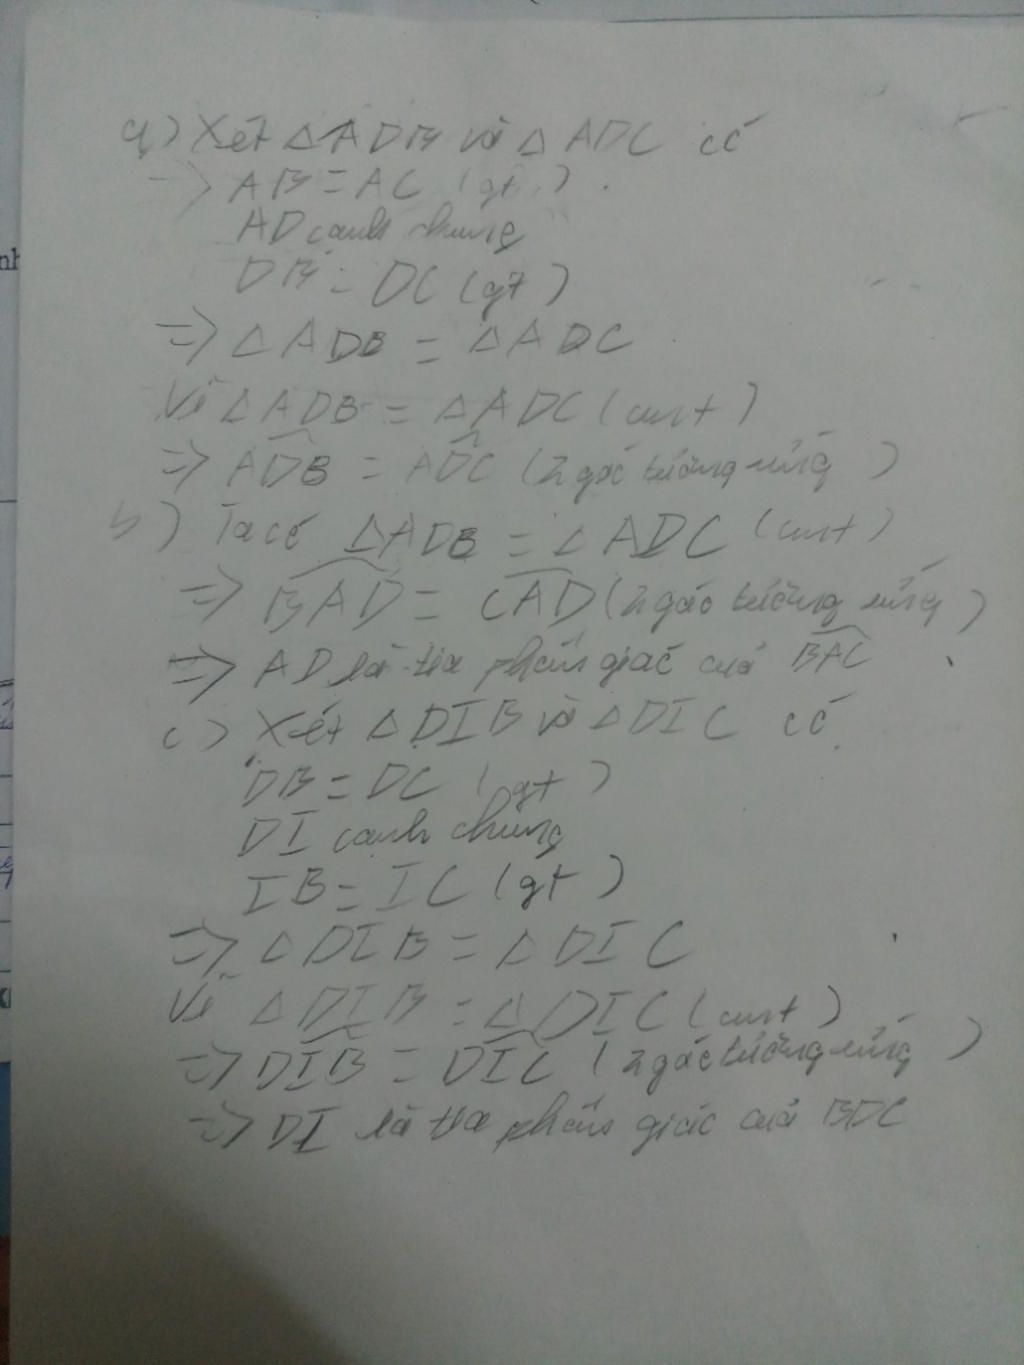 a) Xét △ADB và △ADC có
=> AB = AC (gt)
AD cạnh chung
DB = DC (gt)
=> △ADB = △ADC
Vì △ADB = △ADC (cmt)
=> ADB̂ = ADĈ (2 góc tương ứng)
b) Ta có △ADB = △ADC (cmt)
=> BAD̂ = CAD̂ (2 góc tương ứng)
=> AD là tia phân giác của BAĈ
c) Xét △DIB và △DIC có
DB = DC (gt)
DI cạnh chung
IB = IC (gt)
=> △DIB = △DIC
Vì △DIB = △DIC (cmt)
=> DIB̂ = DIĈ (2 góc tương ứng)
=> DI là tia phân giác của BDC